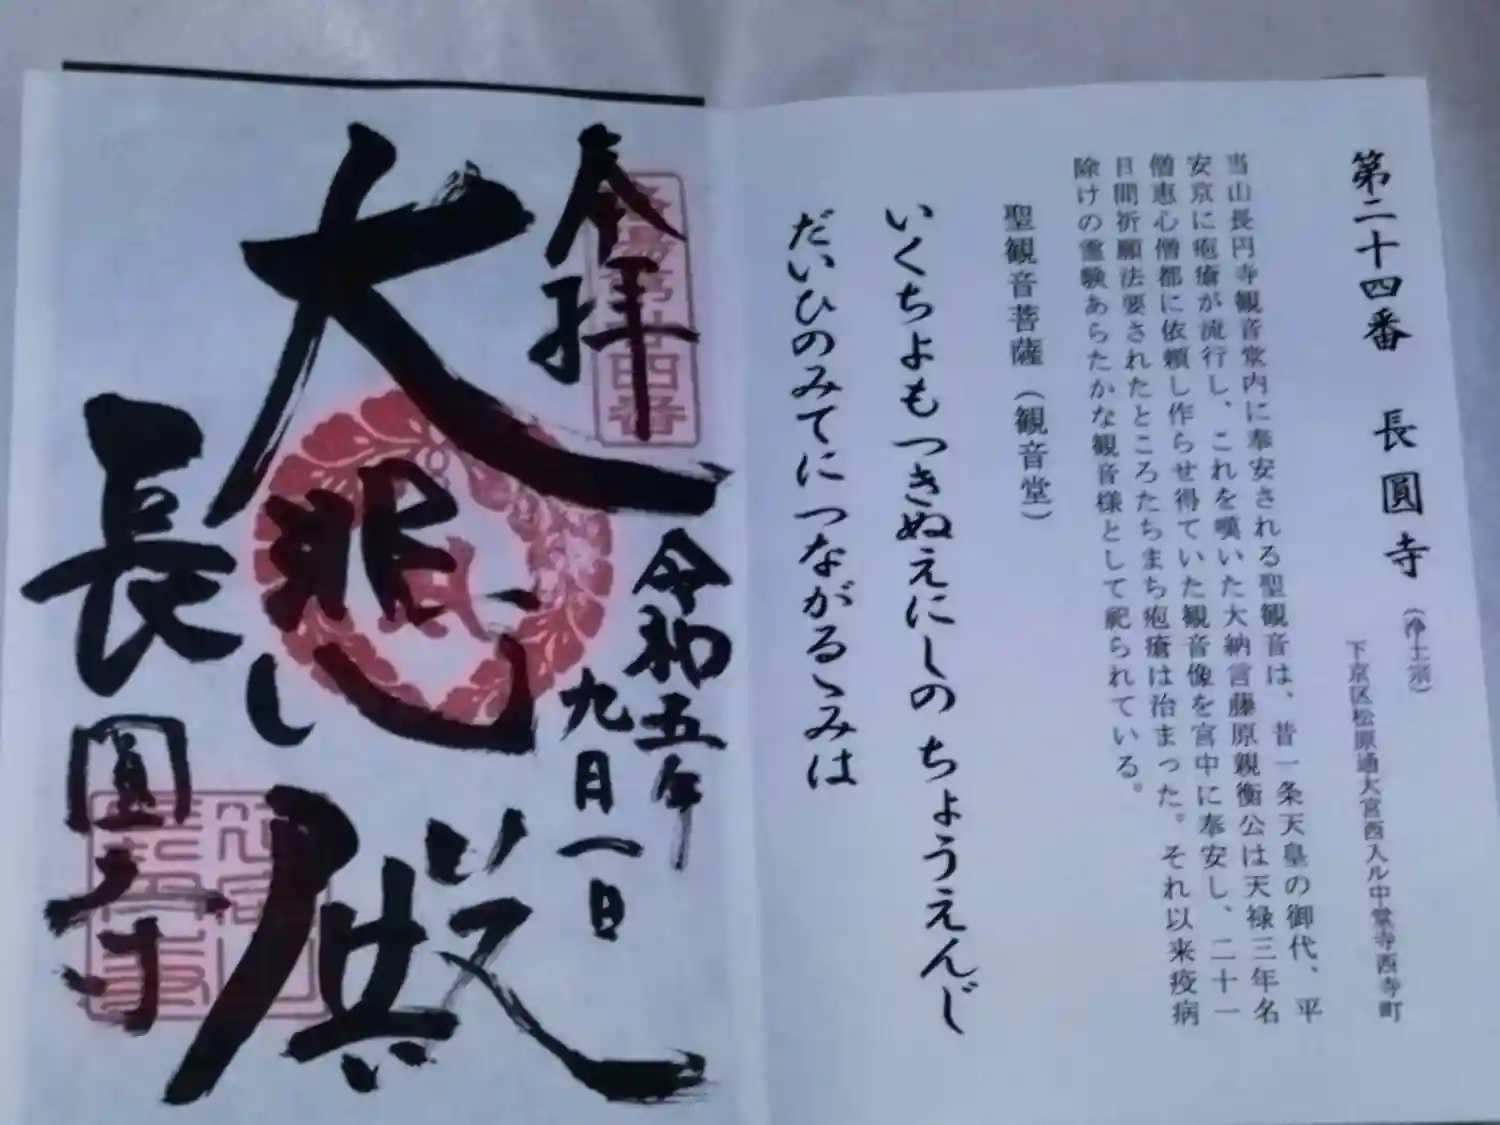 第二十四番 長圓寺 (浄土宗)
下京区松原通大宮西入ル中堂寺西寺町
当山長円寺観音堂内に奉安される聖観音は、昔一条天皇の御代、平
安京に疱瘡が流行し、これを嘆いた大納言藤原親衡公は天禄三年名
僧恵心僧都に依頼し作らせ得ていた観音像を宮中に奉安し、二十一
日間祈願法要されたところたちまち疱瘡は治まった。それ以来疫病
除けの霊験あらたかな観音様として祀られている。
聖観音菩薩(観音堂)
いくちよもつきぬえにしのちょうえんじ
だいひのみてにつながるゝみは
奉拝
洛陽第廿四番
令和五年
九月一日
大悲殿
長圓寺